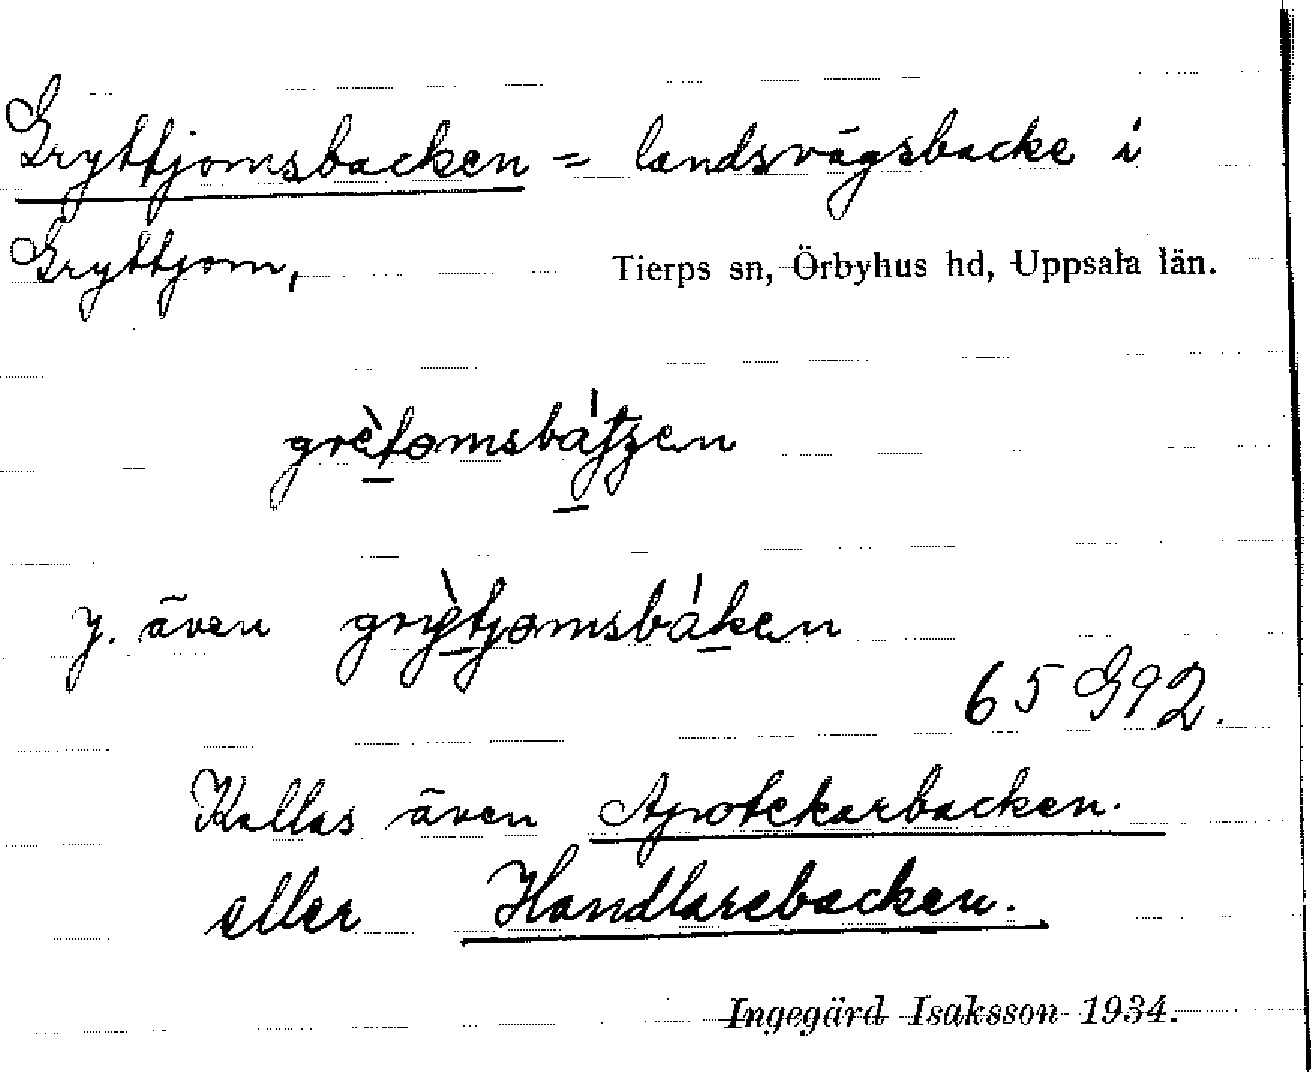 Gryttjomsbacken = landsvägsbacke i
Gryttjom, Tierps sn, Örbyhus hd, Uppsala län.
grètomsbátʃen
y. även grỳtjomsbáken
65 G92.
Kallas även Apotekarbacken.
eller Handlarebacken.
Ingegärd Isaksson 1934.